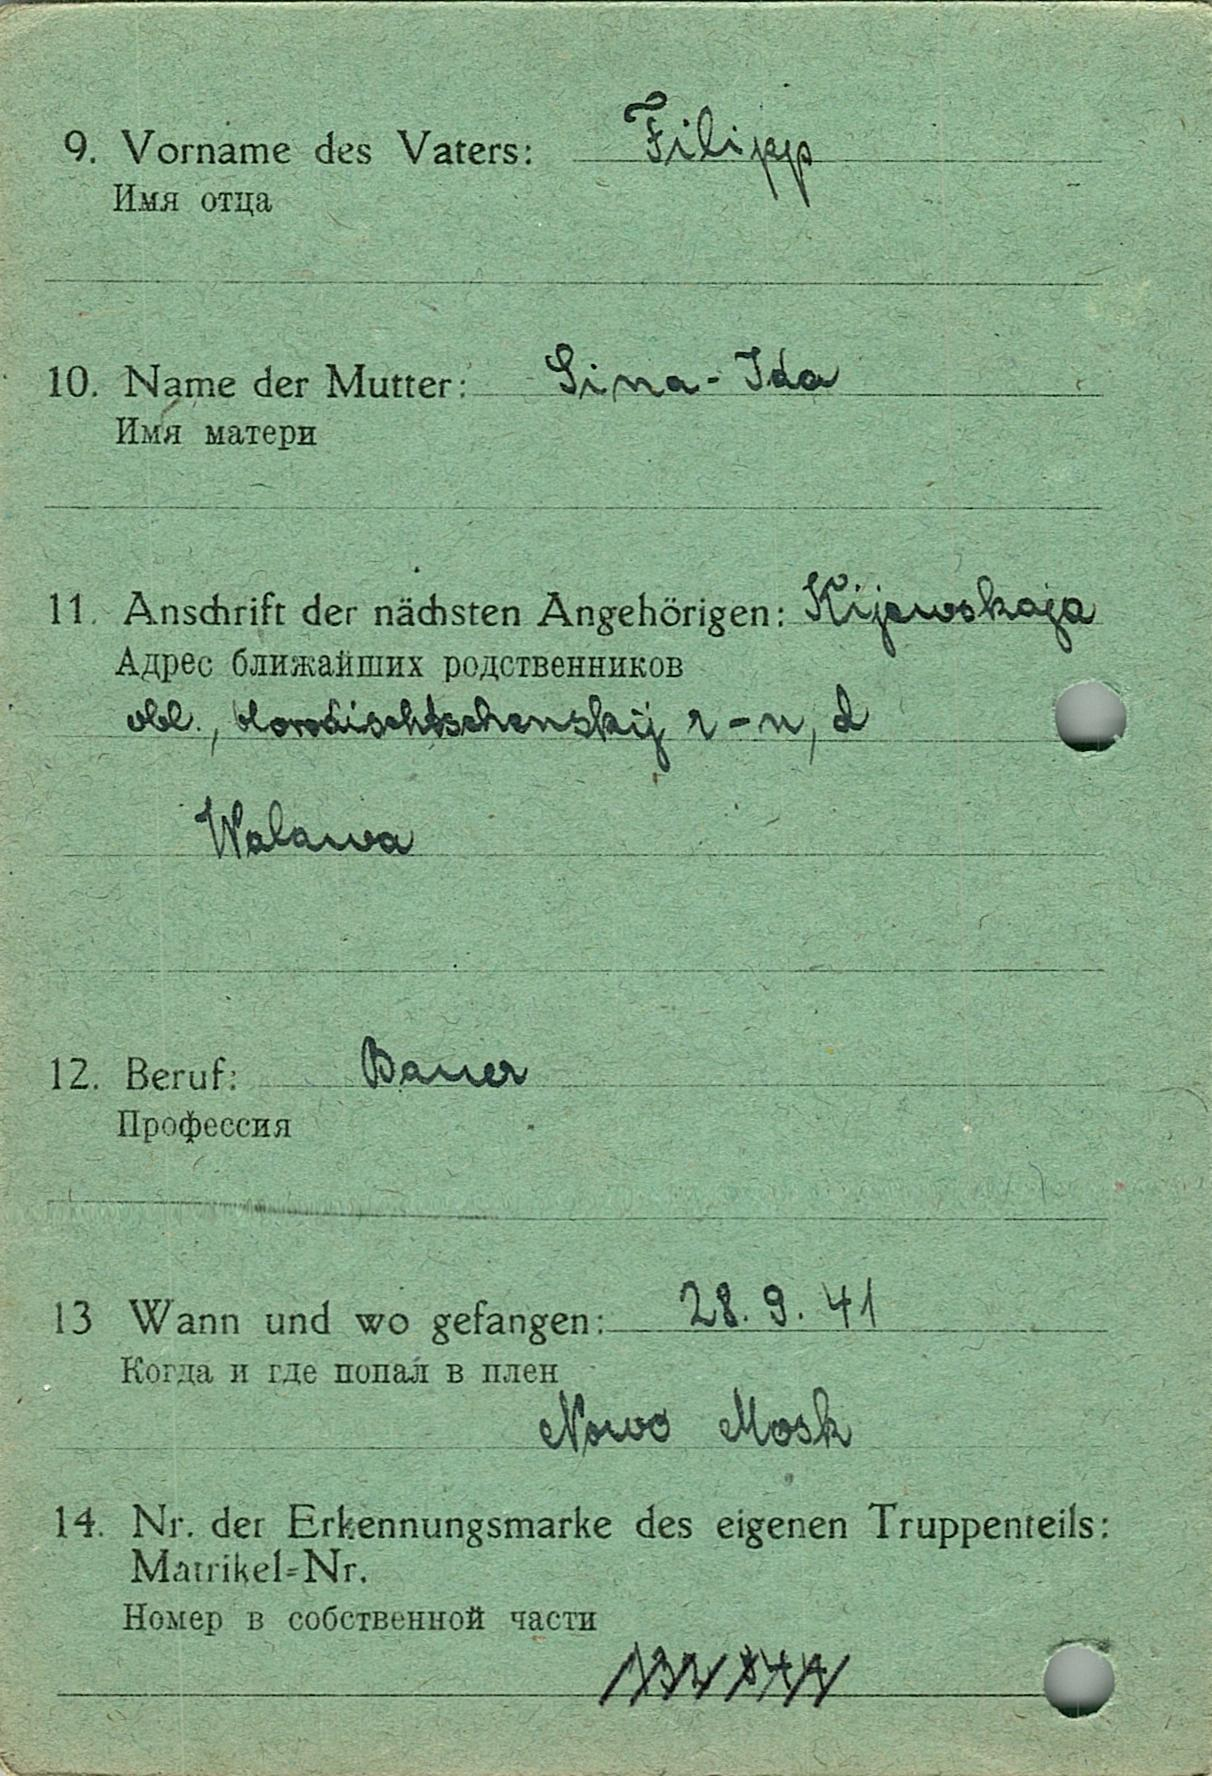 9. Vorname des Vaters: Filipp
Имя отца
10. Name der Mutter: Sina-Ida
Имя матери
11. Anschrift der nächsten Angehörigen: Kijewskaja
Адрес ближайших родственников
obl., Horodischtschenskij r-n, d
Walawa
12. Beruf: Bauer
Профессия
13 Wann und wo gefangen: 28. 9. 41
Когда и где попал в плен
Nowo Mosk
14. Nr. der Erkennungsmarke des eigenen Truppenteils:
Matrikel=Nr.
Номер в собственной части